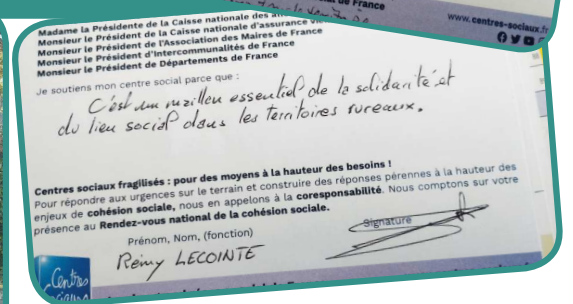 de France
www.centres-sociaux.f
Madame la Présidente de la Caisse nationale des
Monsieur le Président de la Caisse nationale d'assurance
Monsieur le Président de l'Association des Maires de France
Monsieur le Président d'Intercommunalités de France
Monsieur le Président de Départements de France
Je soutiens mon centre social parce que :
C'est un maillon essentiel de la solidarité et
du lien social dans les territoires ruraux.
Centres sociaux fragilisés : pour des moyens à la hauteur des besoins !
Pour répondre aux urgences sur le terrain et construire des réponses pérennes à la hauteur des
enjeux de cohésion sociale, nous en appelons à la coresponsabilité. Nous comptons sur votre
présence au Rendez-vous national de la cohésion sociale.
Prénom, Nom, (fonction)
Signature
Rémy LECOINTE
Centres